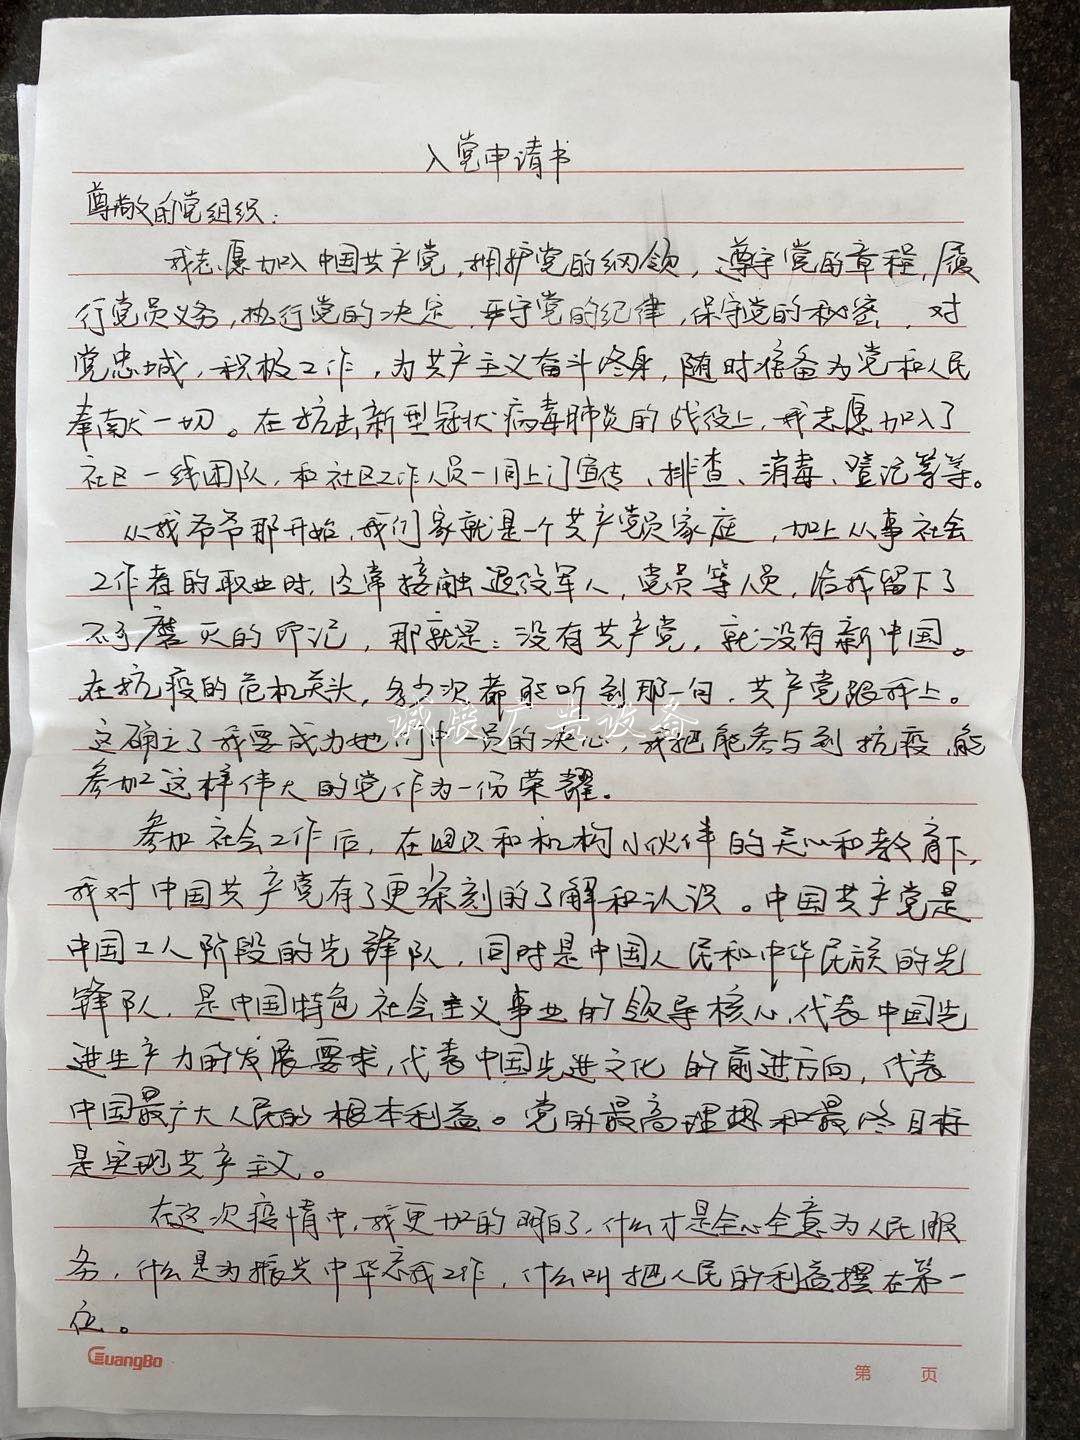 入党申请书
尊敬的党组织：
我志愿加入中国共产党，拥护党的纲领，遵守党的章程，履
行党员义务，执行党的决定，严守党的纪律，保守党的秘密，对
党忠诚，积极工作，为共产主义奋斗终身，随时准备为党和人民
奉献一切。在抗击新型冠状病毒肺炎的战役上，我志愿加入了
社区一线团队，和社区工作人员一同上门宣传、排查、消毒、登记等等。
从我爷爷那开始，我们家就是一个共产党员家庭，加上从事社会
工作者的职业时，经常接触退役军人，党员等人员，给我留下了
不可磨灭的印记，那就是：没有共产党，就没有新中国。
在抗疫的危机关头，多少次都能听到那一句，共产党跟我上。
这确立了我要成为他们中一员的决心，我把能参与到抗疫，能
参加这样伟大的党作为一份荣耀。
参加社会工作后，在和机构小伙伴的关心和教育下，
我对中国共产党有了更深刻的了解和认识。中国共产党是
中国工人阶段的先锋队，同时是中国人民和中华民族的先
锋队，是中国特色社会主义事业的领导核心，代表中国先
进生产力的发展要求，代表中国先进文化的前进方向，代表
中国最广大人民的根本利益。党的最高理想和最终目标
是实现共产主义。
在这次疫情中，我更加的明白了，什么才是全心全意为人民服
务，什么是为振兴中华忘我工作，什么叫把人民的利益摆在第一
位。
诚展广告设备
GuangBo
第 页